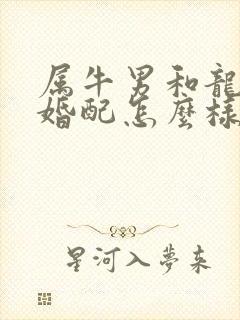 属牛男和龍
婚配怎麼樣
星河入夢来